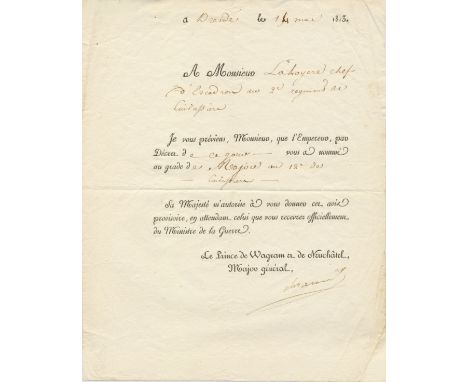 a Dresde le 14 mai 1813.
A Monsieur Lahoyere chef
d'Escadron au 2e regiment de
Cuirassiers
Je vous préviens, Monsieur, que l'Empereur, par
Décret de ce jour vous a nommé
au grade de Major au 12e de
Cuirassiers
Sa Majesté m'autorise à vous donner cet avis
provisoire, en attendant celui que vous recevrez officiellement
du Ministre de la Guerre.
Le Prince de Wagram et de Neuchâtel,
Major général,